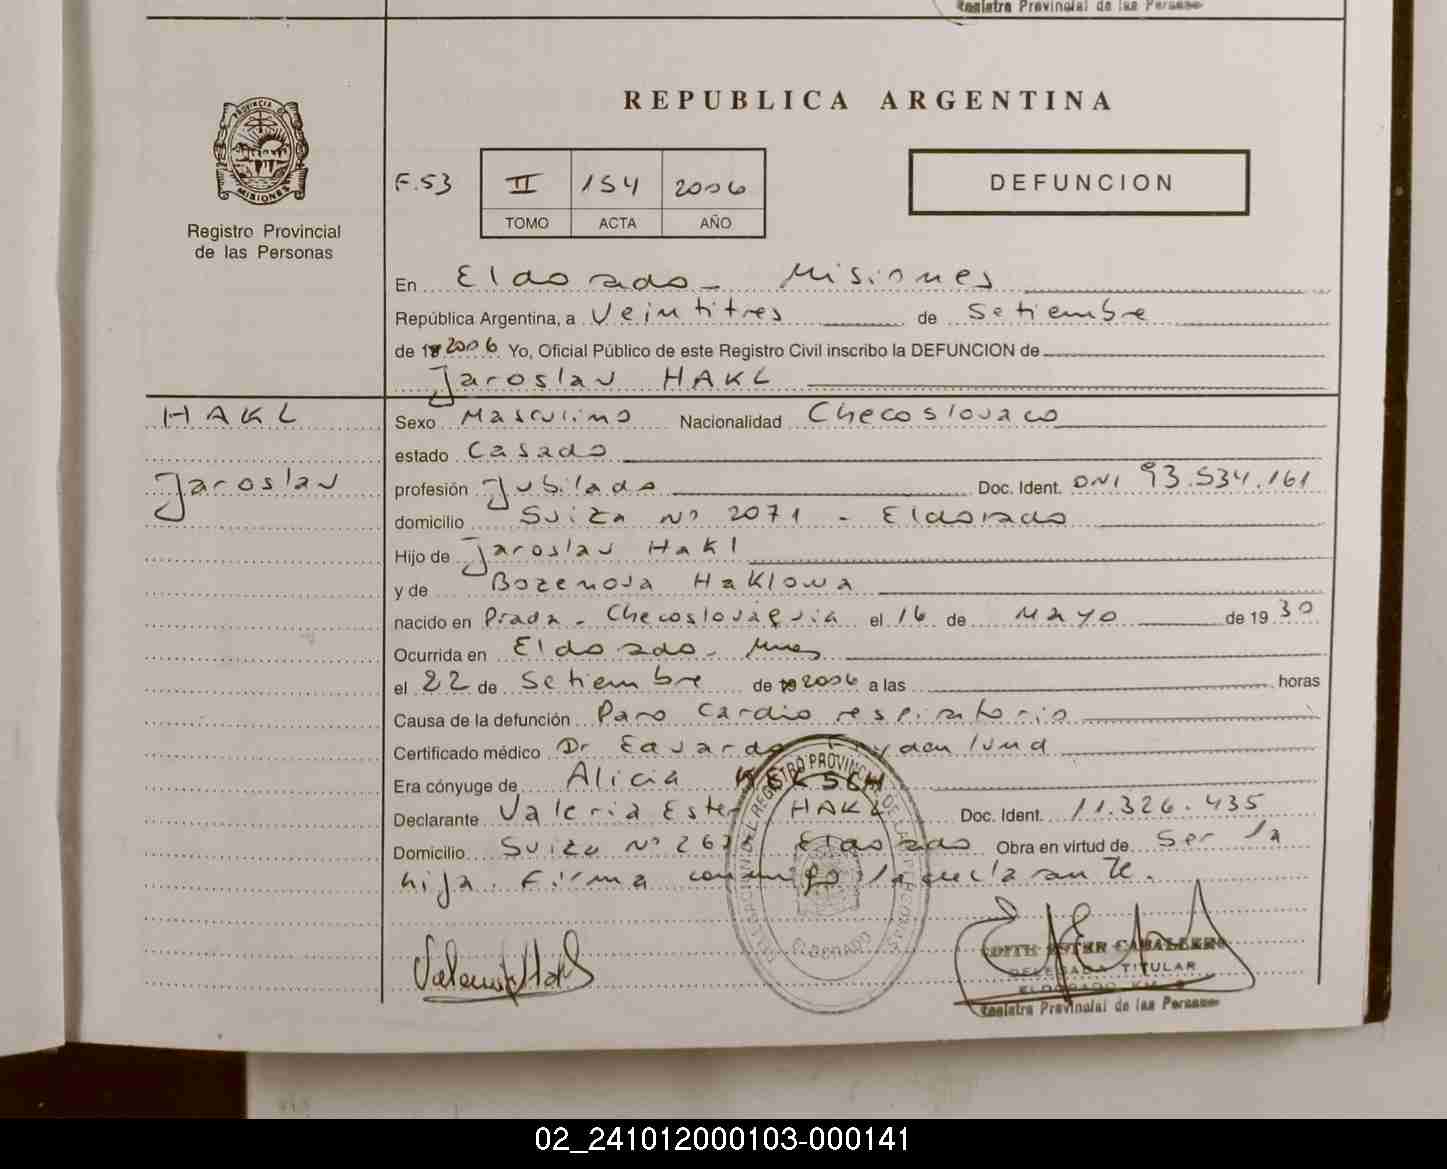 Registro Provincial de las Personas
REPUBLICA ARGENTINA
PROVINCIA DE
MISIONES
Registro Provincial
de las Personas
F.53
II 154 2006
TOMO ACTA AÑO
DEFUNCION
En Eldorado - Misiones
República Argentina, a Veintitres de Setiembre
de 2006 Yo, Oficial Público de este Registro Civil inscribo la DEFUNCION de
Jaroslav HAKL
HAKL
Jaroslav
Sexo Masculino Nacionalidad Checoslovaco
estado Casado
profesión Jubilado Doc. Ident. DNI 93.534.161
domicilio Suiza Nº 2071 - Eldorado
Hijo de Jaroslav Hakl
y de Bozenova Haklowa
nacido en Prada - Checoslováquia el 16 de Mayo de 1930
Ocurrida en Eldorado - Mnes
el 22 de Setiembre de 2006 a las horas
Causa de la defunción Paro Cardio respiratorio
Certificado médico Dr Eduardo
Era cónyuge de Alicia
Declarante Valeria Ester HAKL Doc. Ident. 11.326.435
Domicilio Suiza Nº Eldorado Obra en virtud de Ser la
hija. Firma conmigo la declarante.
REGISTRO PROVINCIAL DE LAS PERSONAS
ELDORADO
EDITH ESTER CABALLERO
DELEGADA TITULAR
ELDORADO KM.
Registro Provincial de las Personas
02_241012000103-000141